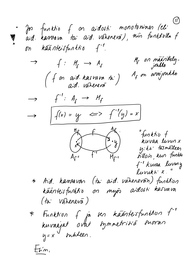 Jos funktio f on aidosti monotoninen (eli
aid. kasvava tai aid. vähenevä), niin funktiolla f
on käänteisfunktio f⁻¹
→ f: Mf → Af
Mf on määrittely-
joukko
(f on aid kasvava tai
aid. vähenevä)
Af on arvojoukko
→ f⁻¹: Af → Mf
→ f(x) = y ⟺ f⁻¹(y) = x
f
f⁻¹
"funktio f
kuvaa luvun x
f⁻¹
kuvaa luvun
* Aid. kasvavan (tai aid. vähenevän) funktion
käänteisfunktio on myös aidosti kasvava
(tai vähenevä)
* Funktion f ja sen käänteisfunktion f⁻¹
kuvaajat ovat symmetrisiä suoran
y = x suhteen.
Esim.